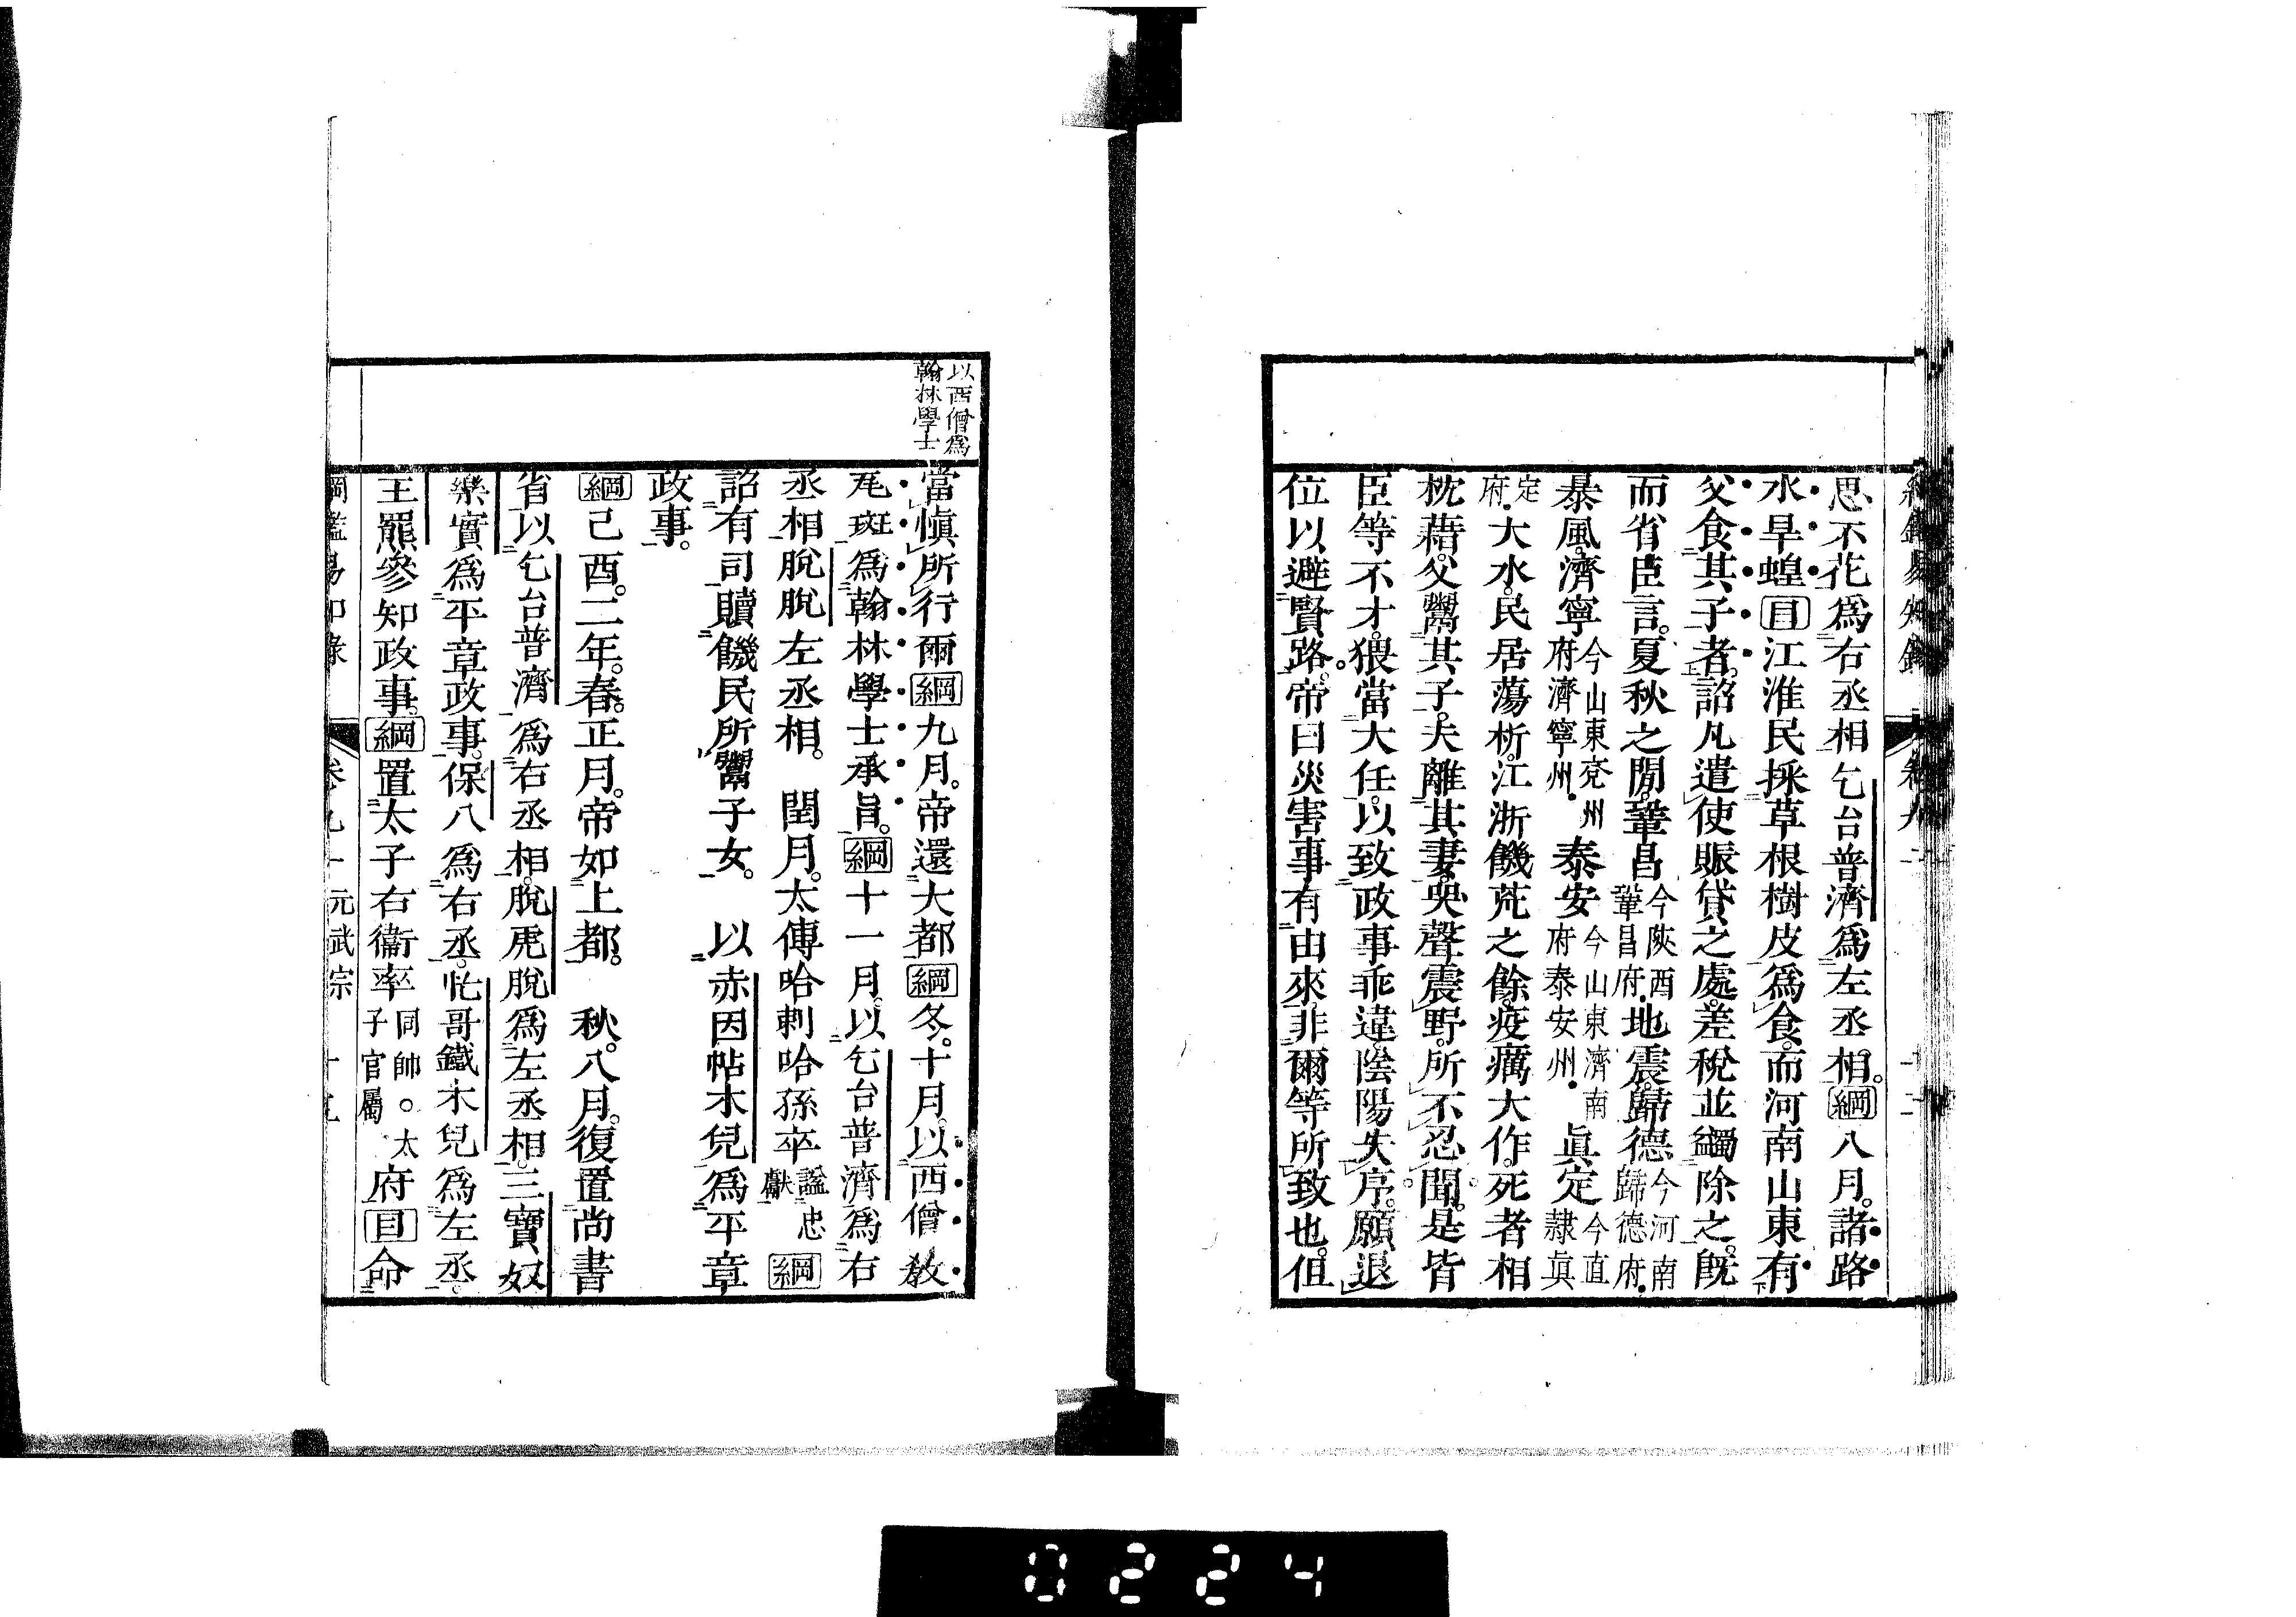 思不花爲右丞相乞台普濟爲左丞相。綱八月。諸路
水旱蝗目江淮民採草根樹皮爲食。而河南山東有
父食其子者。詔凡遣使賑貸之處。差稅並蠲除之。旣
而省臣言。夏秋之閒。鞏昌今陝西鞏昌府.地震。歸德今河南歸德府.
暴風。濟寧今山東兗州府濟寧州.泰安今山東濟南府泰安州.眞定今直隷眞
定府.大水。民居蕩析。江浙饑荒之餘。疫癘大作。死者相
枕藉。父鬻其子。夫離其妻。哭聲震野。所不忍聞。是皆
臣等不才。猥當大任。以致政事乖違。陰陽失序。願退
位以避賢路。帝曰災害事有由來。非爾等所致也。但
以西僧爲
翰林學士
當愼所行爾綱九月。帝還大都綱冬。十月。以西僧敎
尾斑爲翰林學士承旨。綱十一月。以乞台普濟爲右
丞相脫脫左丞相。閏月。太傅哈剌哈孫卒謚忠獻綱
詔有司贖饑民所鬻子女。以赤因帖木兒爲平章
政事。
綱己酉。二年。春。正月。帝如上都。秋。八月。復置尚書
省以乞台普濟爲右丞相。脫虎脫爲左丞相。三寶奴
樂實爲平章政事。保八爲右丞。忙哥鐵木兒爲左丞。
王羆參知政事。綱置太子右衞率同帥。太子官屬府目命
綱鑑易知錄 卷九十 元武宗 十九
0224